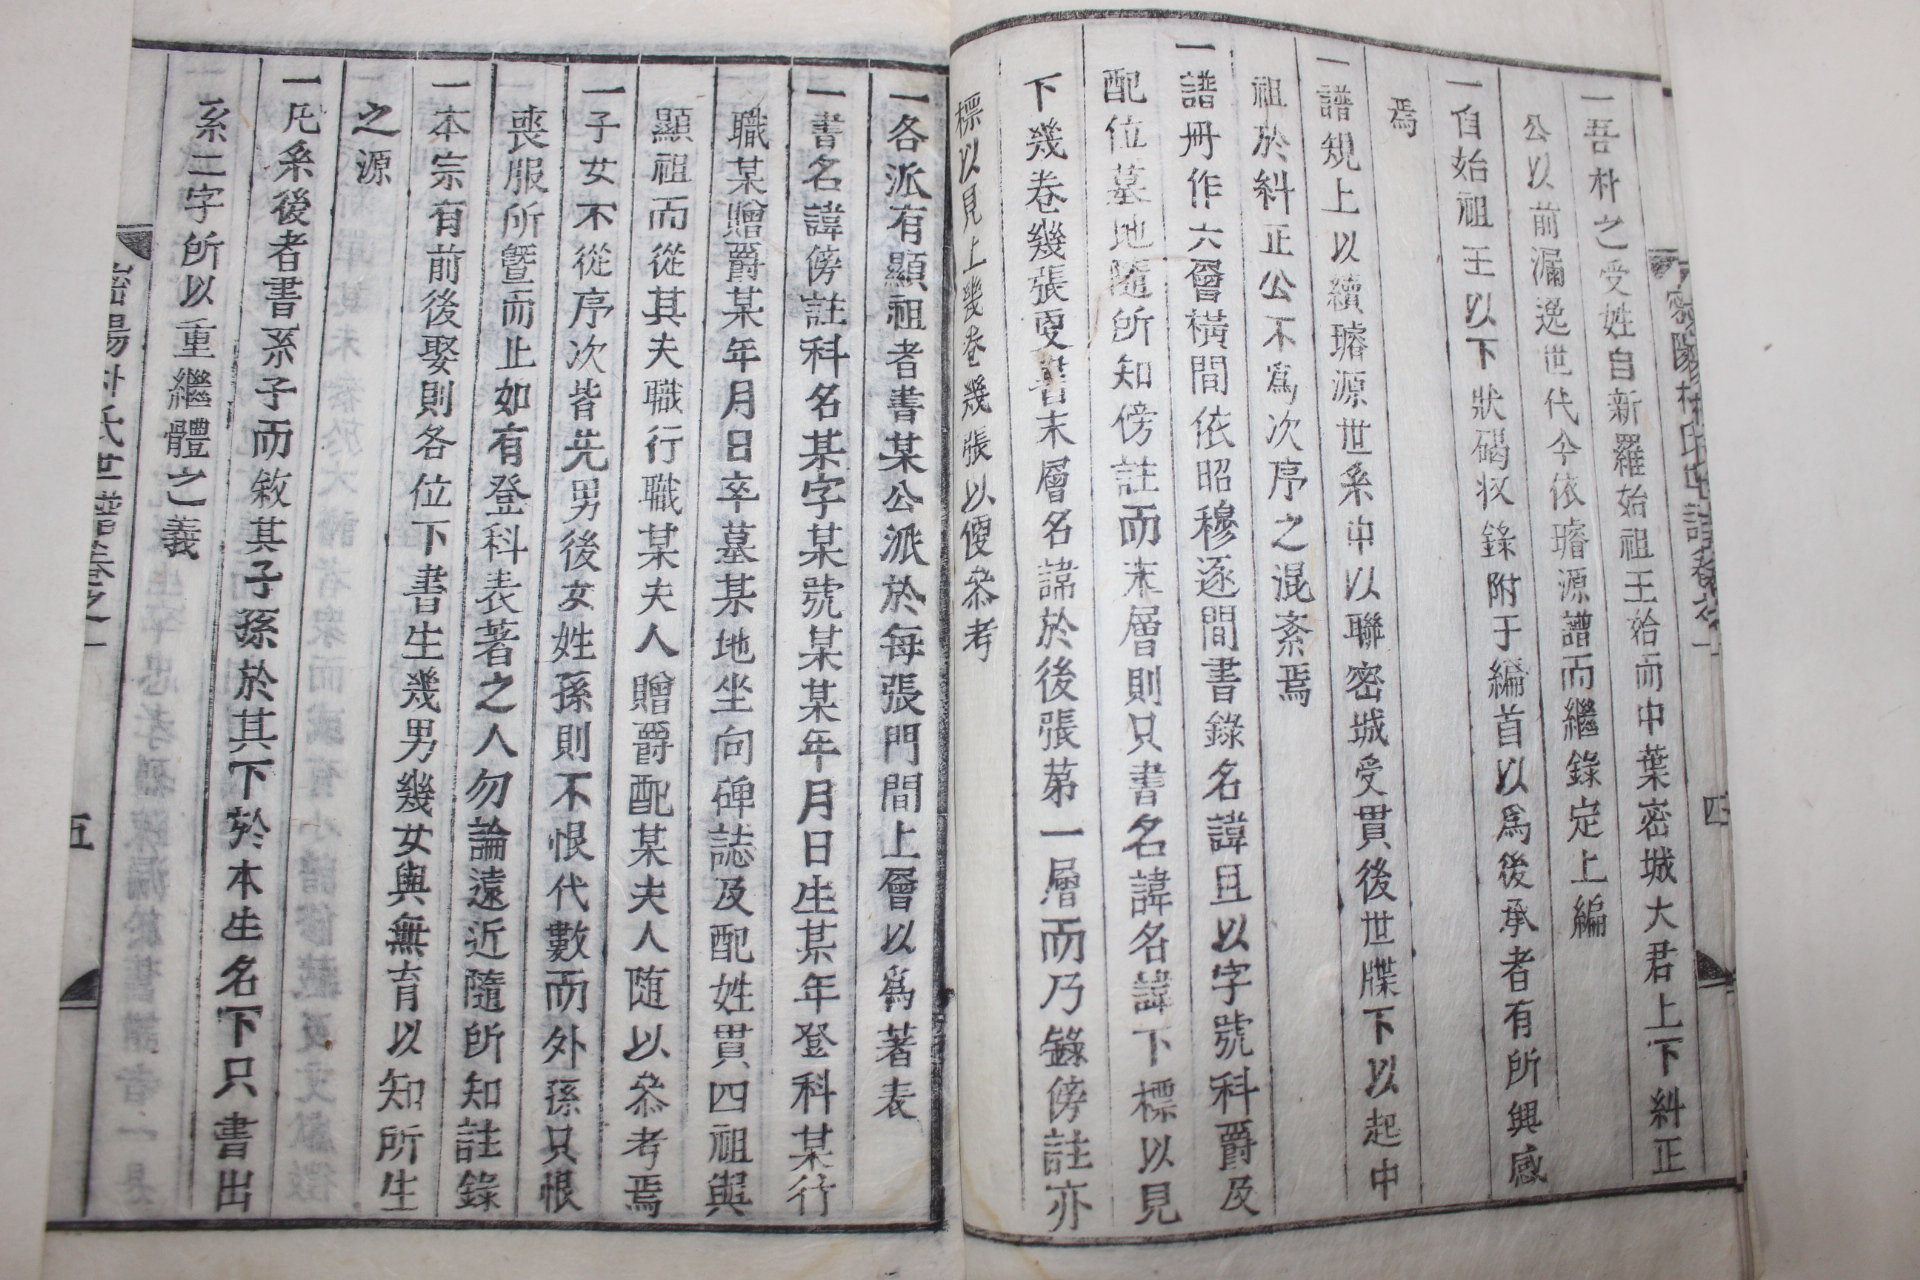 密陽朴氏世譜卷之一
四
一吾朴之受姓自新羅始祖王始而中葉密城大君上下糾正
公以前漏逸世代今依璿源譜而繼錄定上編
一自始祖王以下狀碣收錄附于編首以爲後承者有所興感
焉
一譜規上以續璿源世系中以聯密城受貫後世牒下以起中
祖於糾正公不爲次序之混紊焉
一譜冊作六層橫間依昭穆逐間書錄名諱且以字號科爵及
配位墓地隨所知傍註而末層則只書名諱名諱下標以見
下幾卷幾張更書末層名諱於後張苐一層而乃錄傍註亦
標以見上幾卷幾張以便叅考
一各派有顯祖者書某公派於每張門間上層以爲著表
一書名諱傍註科名某字某號某某年月日生某年登科某行
職某贈爵某年月日卒墓某地坐向碑誌及配姓貫四祖與
顯祖而從其夫職行職某夫人贈爵配某夫人随以叅考焉
一子女不從序次皆先男後女姓孫則不恨代數而外孫只恨
喪服所曁而止如有登科表著之人勿論遠近隨所知註錄
一本宗有前後娶則各位下書生幾男幾女與無育以知所生
之源
一凡系後者書系子而敘其子孫於其下於本生名下只書出
系二字所以重繼體之義
密陽朴氏世譜卷之一
五